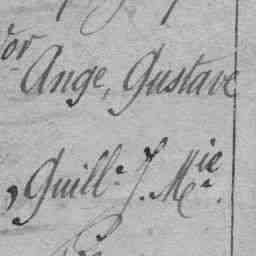 or
Ange, Gustave
, Guill.e J. M.ie